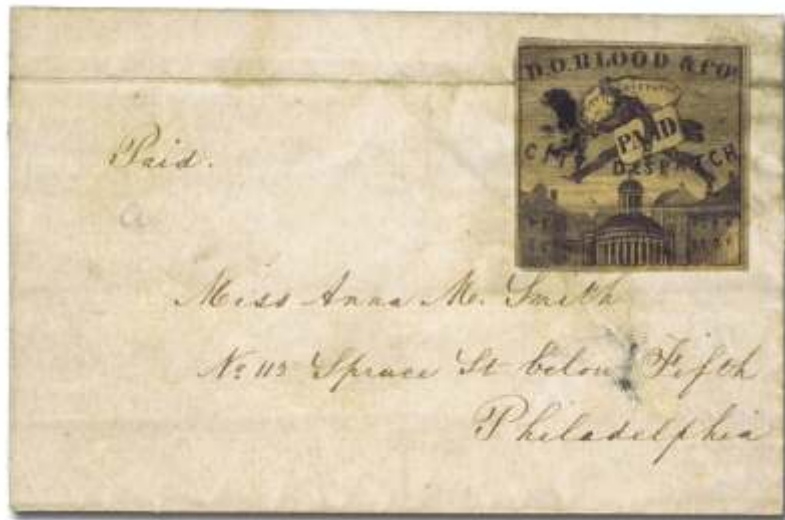 D.O. BLOOD & Co's
PAID
CITY DESPATCH
Paid.
Miss Anna M. Smith
No 113 Spruce St below Fifth
Philadelphia